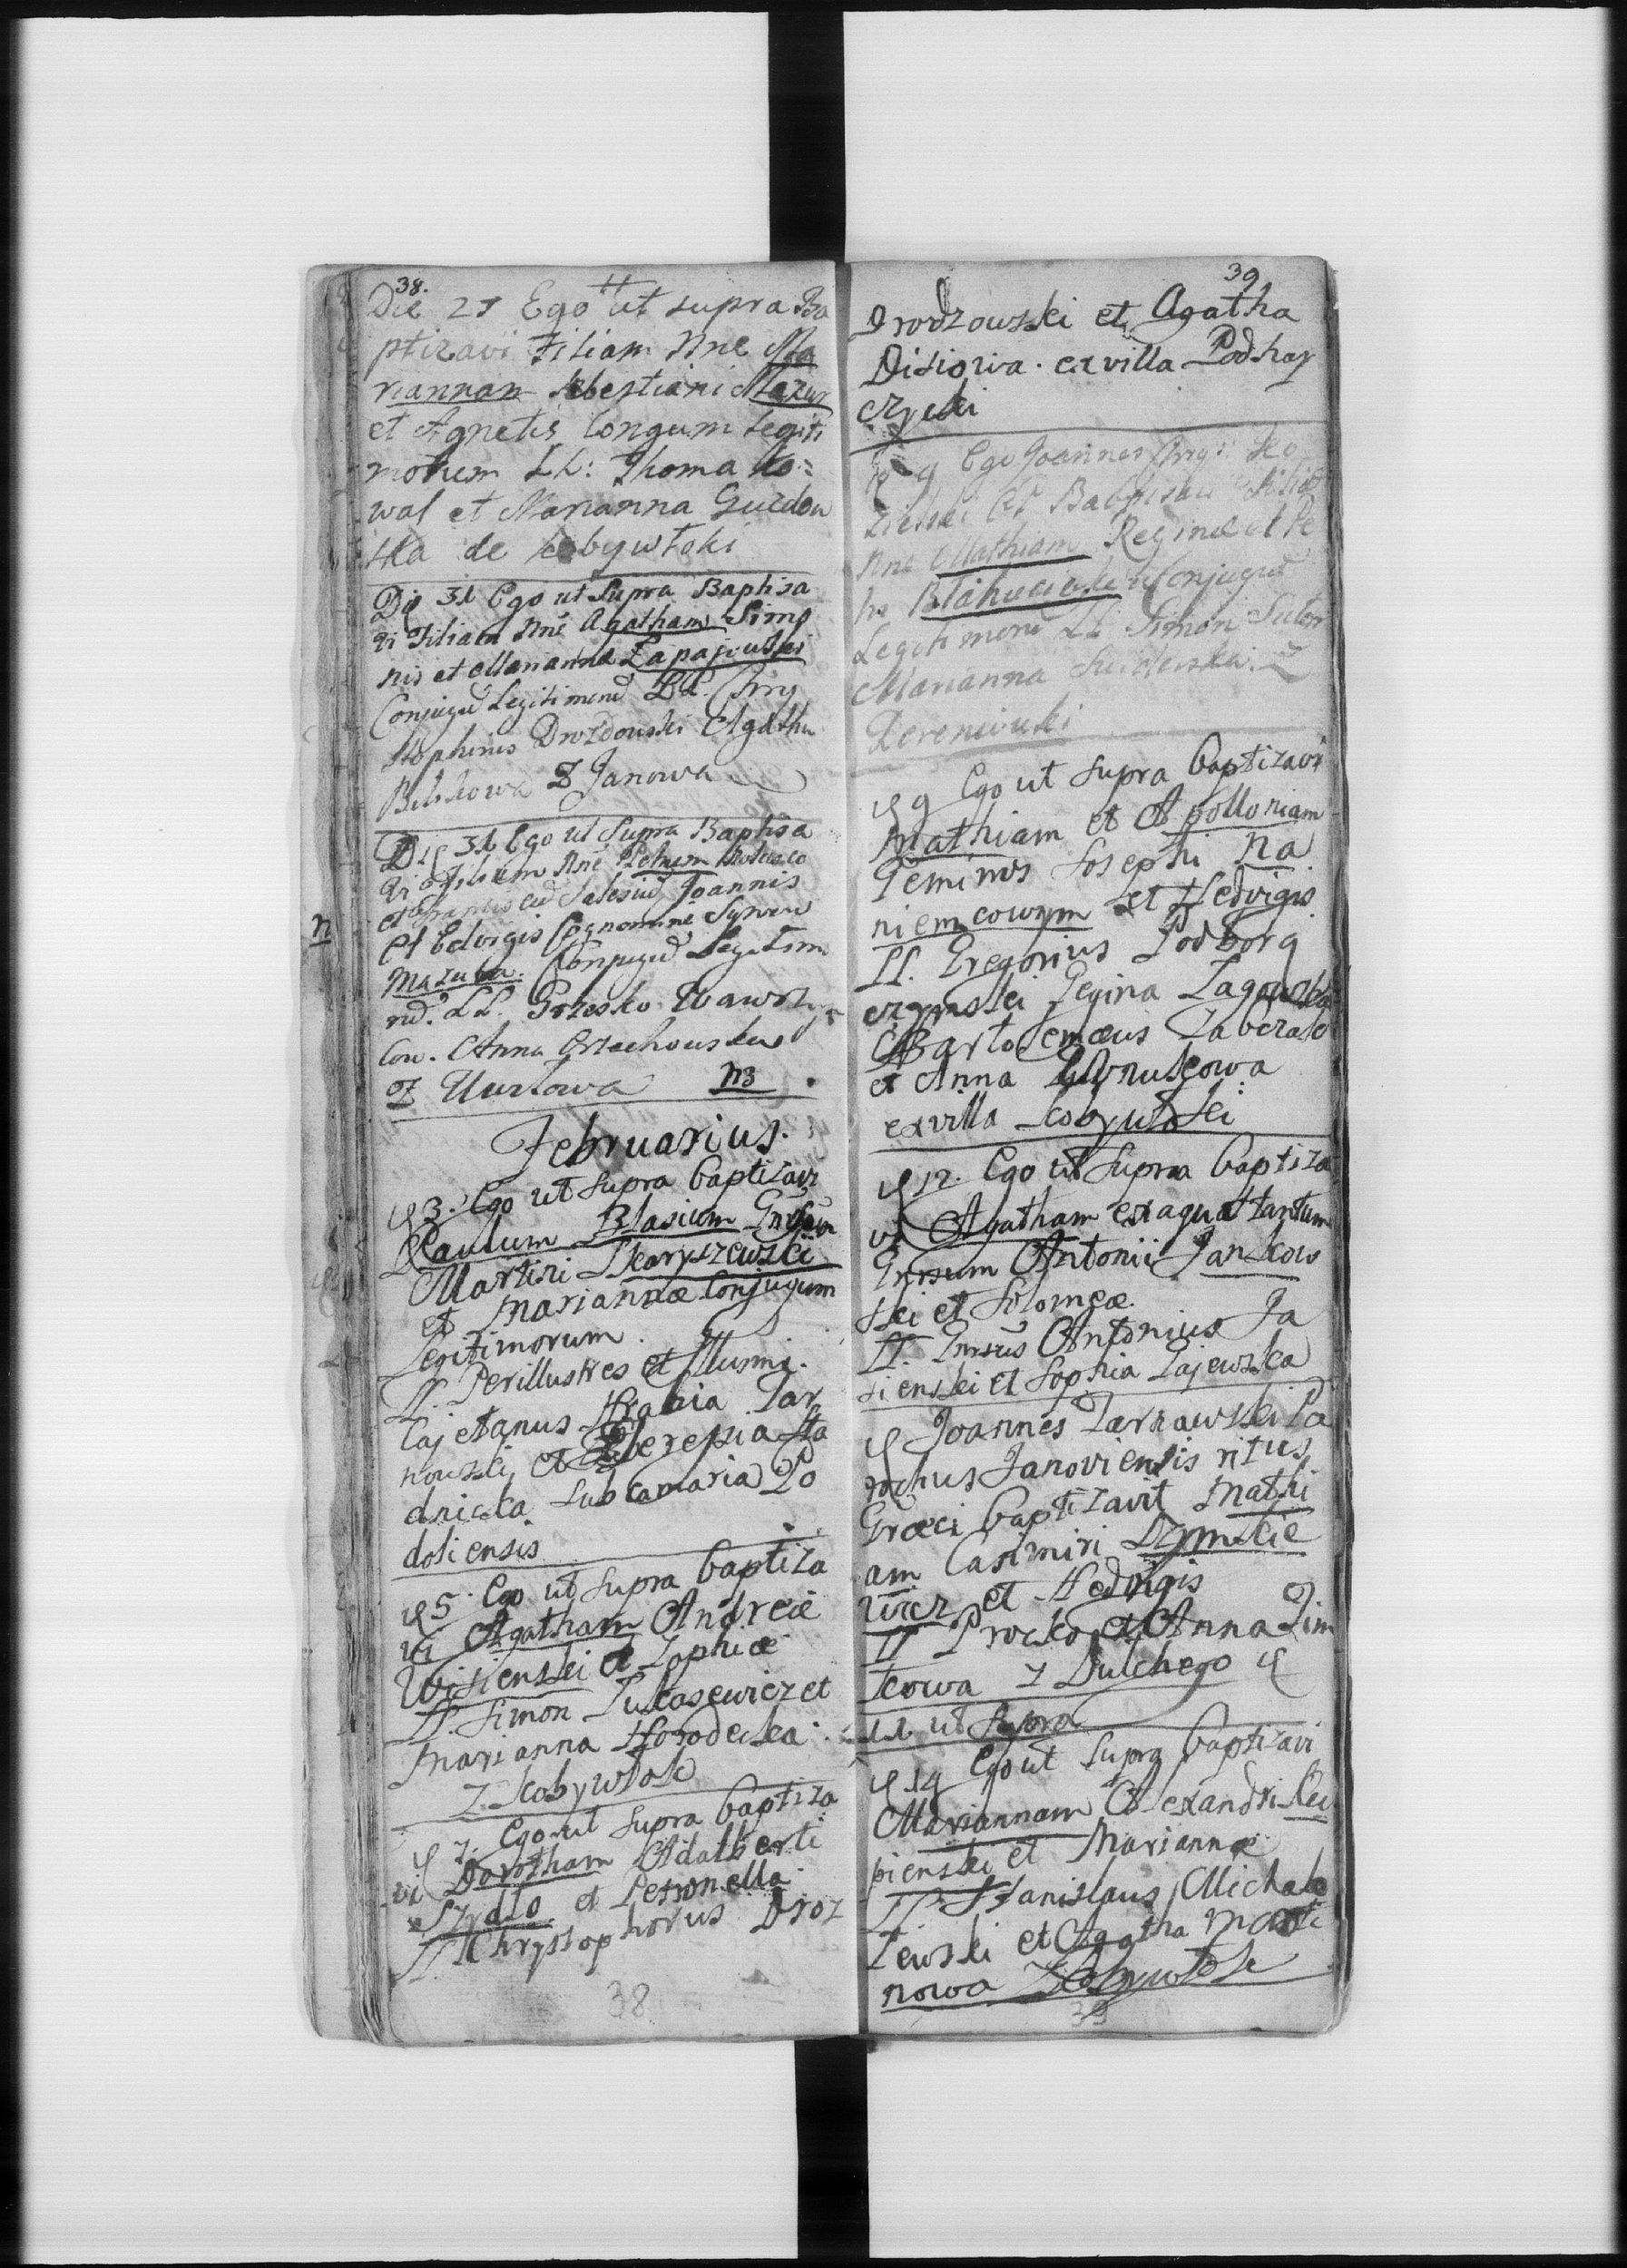 38.
Die 25 Ego ut supra Ba
ptizavi Filiam Nne Ma
riannam Sebestiani Mazur
et Agnetis Congum Legiti
morum LL: Thoma Ko=
wal et Marianna Guzdow
ska de Kobywłoki
Die 31 Ego ut Supra Baptisa
vi Filiam Nne Agatham Simo
nis et Marianna Zapajowski
Conjugu Legitimoru LL. Chry
stophirus Drozdouski Agatha
Z Janowa
Die 31 Ego ut Supra Baptisa
vi Filium Nne Petrum
et Joannis
et Edvigis Cognomine
n
Mazurka. Conjugu Legitimo
ru. LL. Grzesko Wawrzy
Anna Orzechouska
z Uurlowa NB.
Februarius.
3. Ego ut supra baptizavi
Paulum Blasium Gnrsum
Martini Skaryszewski
et Mariannæ Conjugum
Legitimorum.
LL. Perillustres et Illusmi.
Cajetanus Hrabia Tar
nowski et Theresia Ha
dnicka Subcamaria Po
doliensis
5. Ego ut supra baptiza
vi Agatham Andreæ
Wisienski et Zophiæ
LL. Simon Lukasewicz et
Marianna Horodecka
Z Kobywłok
7. Ego ut supra baptiza
vi Dorotham Adalberti
Szydlo et Petronella
LL. Chrystophorus Droz
38
39
drodzowski et Agatha
Disiowa. ex villa Podhay
czyki
9 Ego Joannes
Baptisavi Filiu
Nne Mathiam Reginæ et Pe
Conjugu
Legitimoru LL Simon Sutor
Marianna
Dereniwki
9 Ego ut supra baptizavi
Mathiam et Apolloniam
Geminos Josephi Na
niemcowym et Hedvigis
LL. Gregorius Podborg
czynski Regina Zagorska
Bartolemæus Zaberako
et Anna
ex villa Kobywłoki
12. Ego ut supra baptiza
vi Agatham ex aqua tantum
Gnrsum Antonii Jankow
ski et Solomeæ.
LL. Gnrsus Antonius Ja
sienski et Sophia Zajewska
Joannes Tarnawski Pa
rochus Janoviensis ritus
Græci baptizavit Mathi
am Casimiri Szymkie
wicz et Hedvigis
LL Procko et Anna Zim
kowa z Dulchego
LL ut supra
14 Ego ut supra baptizavi
Mariannam Alexandri Ku
pienski et Mariannæ
LL. Stanislaus Michale
zewski et Agatha Marti
nowa Z Kobywłok
39